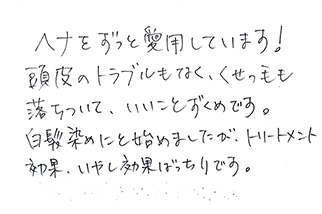 ヘナをずっと愛用しています!
頭皮のトラブルもなく、くせっ毛も
落ちついて、いいことずくめです。
白髪染めにと始めましたが、トリートメント
効果、いやし効果ばっちりです。